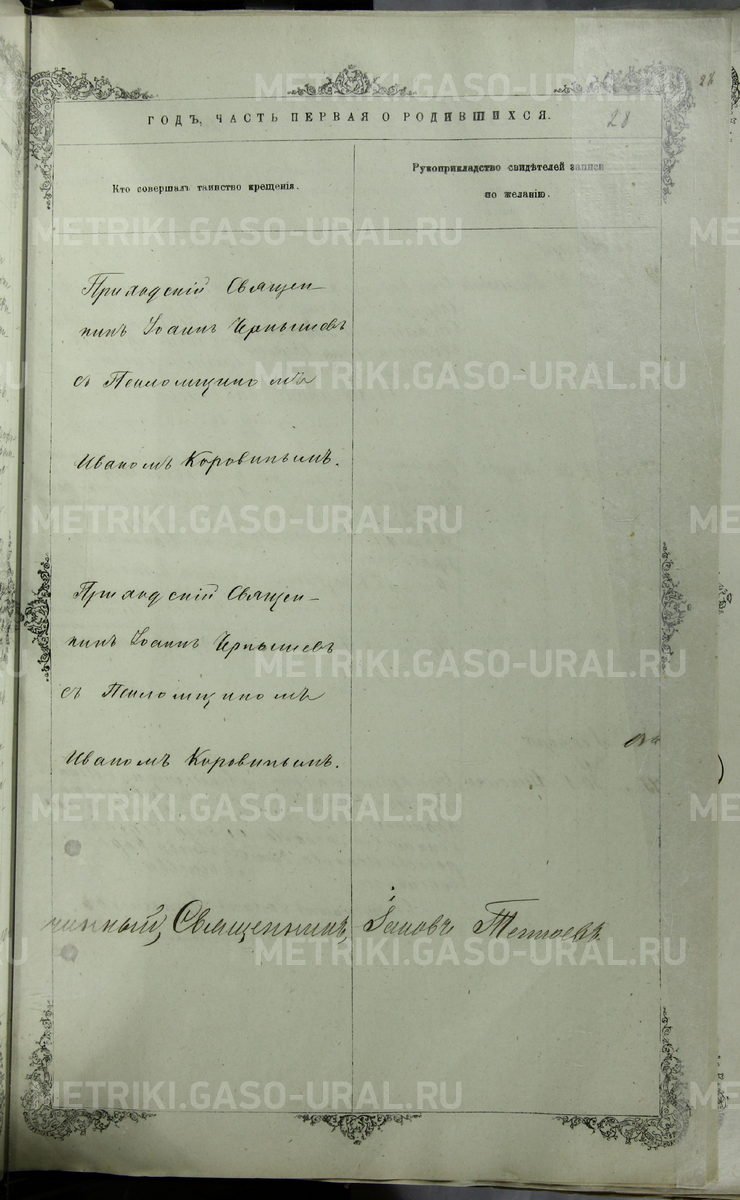 28
ГОДЪ, ЧАСТЬ ПЕРВАЯ О РОДИВШИХСЯ.
28
Кто совершалъ таинство крещенія.
Рукоприкладство свидѣтелей записи
по желанію.
Приходскій Священ-
никъ Іоаннъ Чернышевъ
съ Псаломщикомъ
Иваномъ Коровинымъ.
Приходскій Священ-
никъ Іоаннъ Чернышевъ
съ Псаломщикомъ
Иваномъ Коровинымъ.
чинный, Священникъ, Іаковъ
METRIKI.GASO-URAL.RU